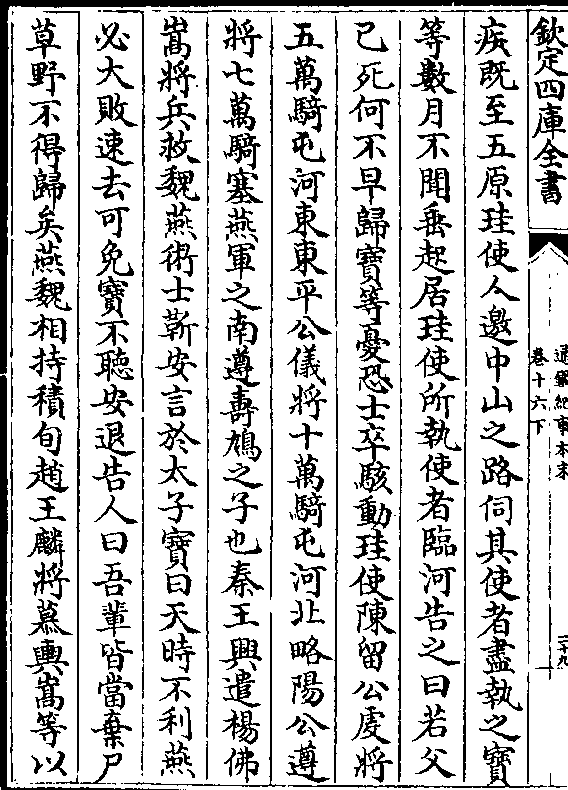 欽定四庫全書
通鑑紀事本末
卷十六下
二十九
疾既至五原珪使人邀中山之路伺其使者盡執之寶
等數月不聞垂起居珪使所執使者臨河告之曰若父
已死何不早歸寶等憂恐士卒駭動珪使陳留公虔將
五萬騎屯河東東平公儀將十萬騎屯河北略陽公遵
將七萬騎塞燕軍之南遵壽鳩之子也秦王興遣楊佛
嵩將兵救魏燕術士靳安言於太子寶曰天時不利燕
必大敗速去可免寶不聽安退告人曰吾輩皆當棄尸
草野不得歸矣燕魏相持積旬趙王麟將慕輿嵩等以